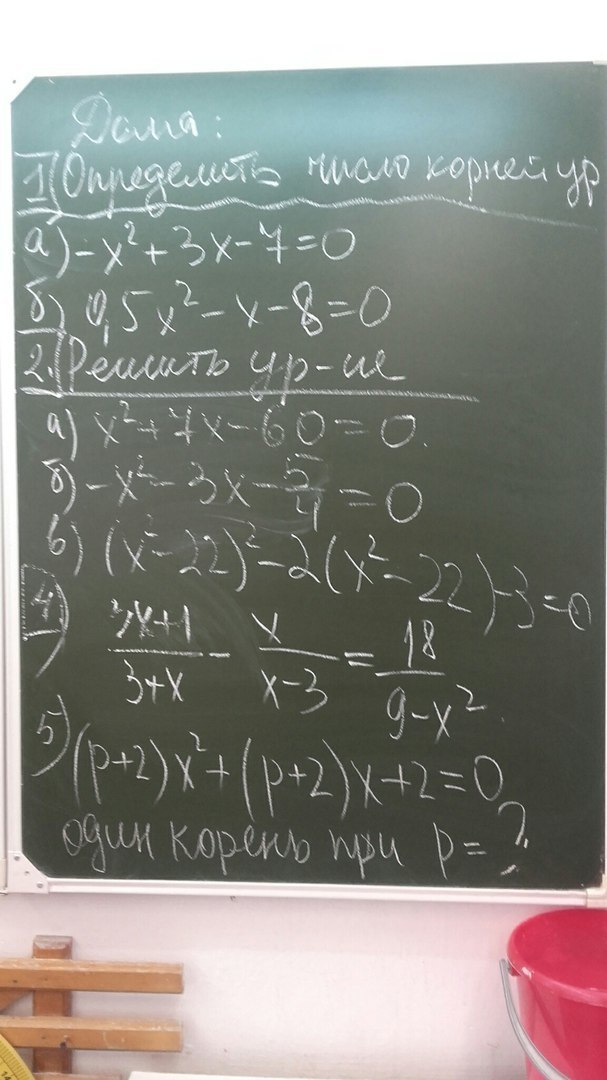 Дома:
1) Определить число корней ур
а) -x² + 3x - 7 = 0
б) 0,5x² - x - 8 = 0
2. Решить ур-ие
а) x² + 7x - 60 = 0.
б) -x² - 3x - 5/4 = 0
в) (x² - 22)² - 2(x² - 22) - 3 = 0
4) (3x+1)/(3+x) - x/(x-3) = 18/(9-x²).
5) (p+2)x² + (p+2)x + 2 = 0
один корень при p = ?